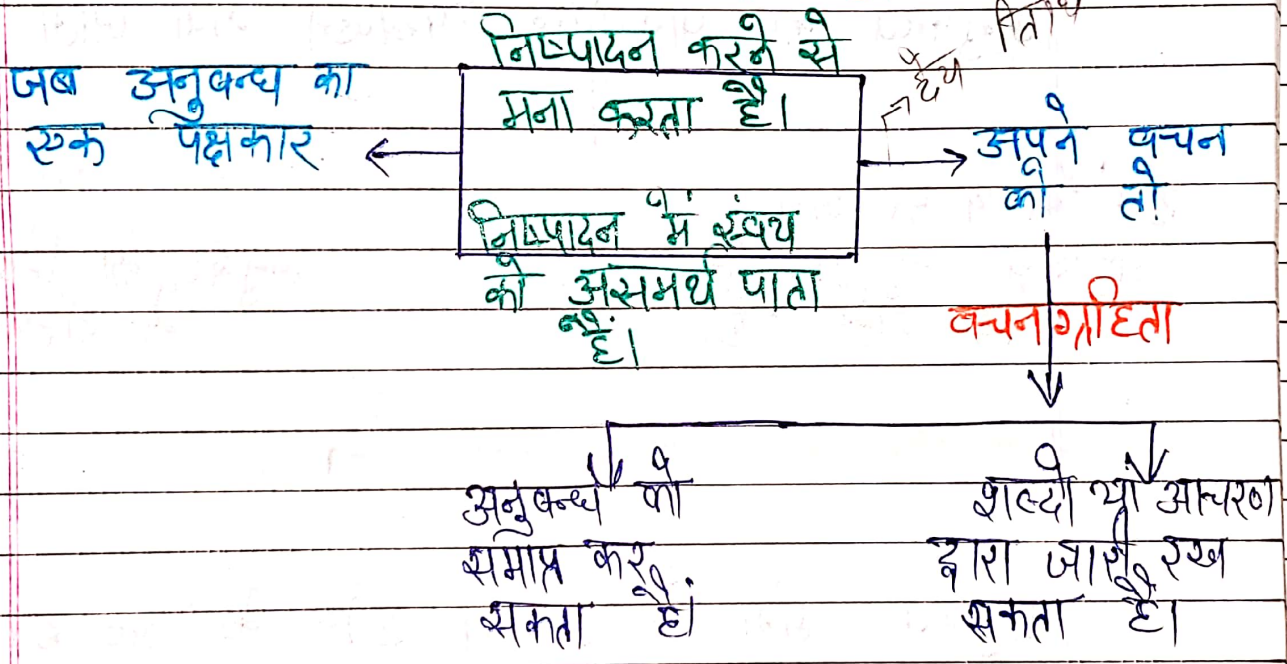 जब अनुबन्ध का
एक पक्षकार
निष्पादन करने से
मना करता है।
निष्पादन में स्वंय
को असमर्थ पाता
हैं।
देय
तिथि
अपने वचन
को तो
वचनग्रहिता
अनुबन्ध को
समाप्त कर
सकता है।
शब्दो या आचरण
द्वारा जारी रख
सकता है।